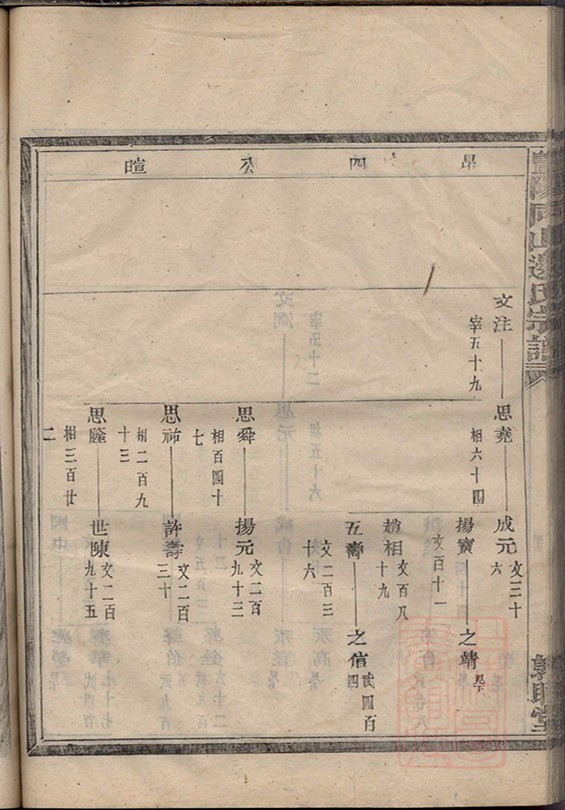 昂四公暄
文注
宰五十九
思堯
相六十四
成元
文三十六
揚寶
文百十一
之靖
見下
趙相
文百八十九
五壽
文二百三十六
之信
武四百四
思舜
相百四十七
揚元
文二百九十三
思祁
相二百九十三
許壽
文二百三十
思隆
相三百廿二
世陳
文二百九十五
山邊氏宗譜
堂